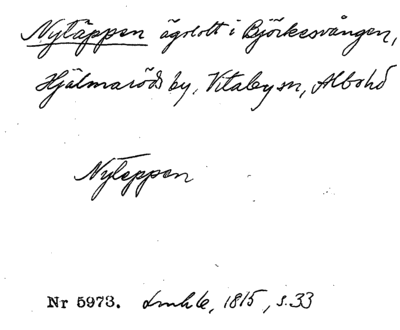 Nytäppen ägolott i Björkesvången,
Hjälmaröds by, Vitaby sn, Albo hd
Nyteppen
Nr 5973. 1815, s. 33